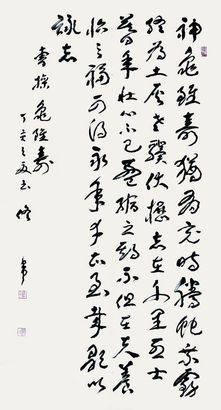 神龜雖壽猶有竟時騰蛇乘霧
終為土灰老驥伏櫪志在千里烈士
暮年壯心不已盈縮之期不但在天養
怡之福可得永年幸甚至哉歌以
詠志
曹操龜雖壽
丁亥之夏書